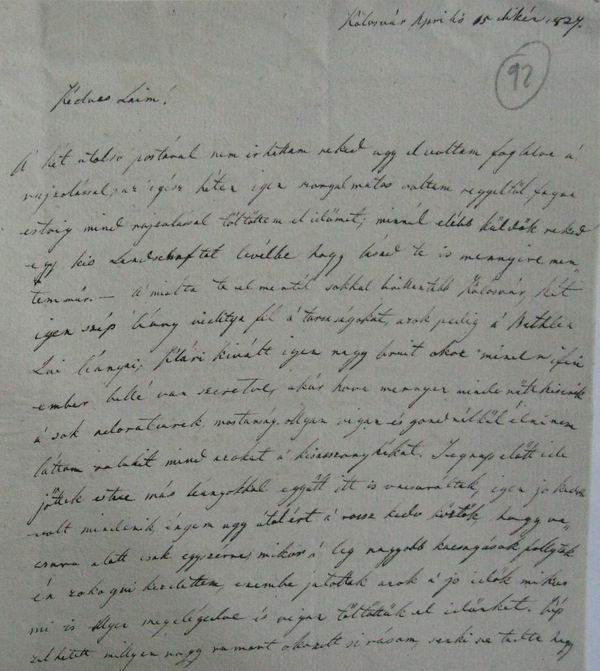 Kolosvár Április 15dikén 1827.
92
Kedves Laim!
A két utolsó postával nem irhattam neked ugy el voltam foglalva a
rajzolással, az egész héten igen szorgalmatos voltam reggeltöl fogva
estvig mind rajzolással töltöttem el idömet; minél elébb küldök neked
egy kis Landschaftot levélbe hogy lásd te is mennyire men
tem már. — A miólta te el mentél sokkal Kolosvár, két
igen szép leány viditja fel á társaságokat, azok pedig á Bethlen
Lai leányai; Klári kivált igen nagy bruit minél
ember belé van szeretve, akár hova mennyen mindenütt kisérik
á sok mostanság ollyan vigan és gond nélkül élni nem
láttam valakit mind azokat á kisasszonykákat. Tegnap elött ide
jöttek estve más leányokkal együtt itt is vacsoráltak, igen jo kedve
volt mindenik, éngem ugy által ért á rossz kedv hogy va
csora alatt csak egyszerre mikor á leg nagyobb kacagások follytak
én zokogni kezdettem, eszembe jutottak azok á jo idök mikor
mi is illyen megelégedve és vigan töltöttük el idönket. Kép
zelheted millyen nagy okozott sirásom, senki se tudta hogy